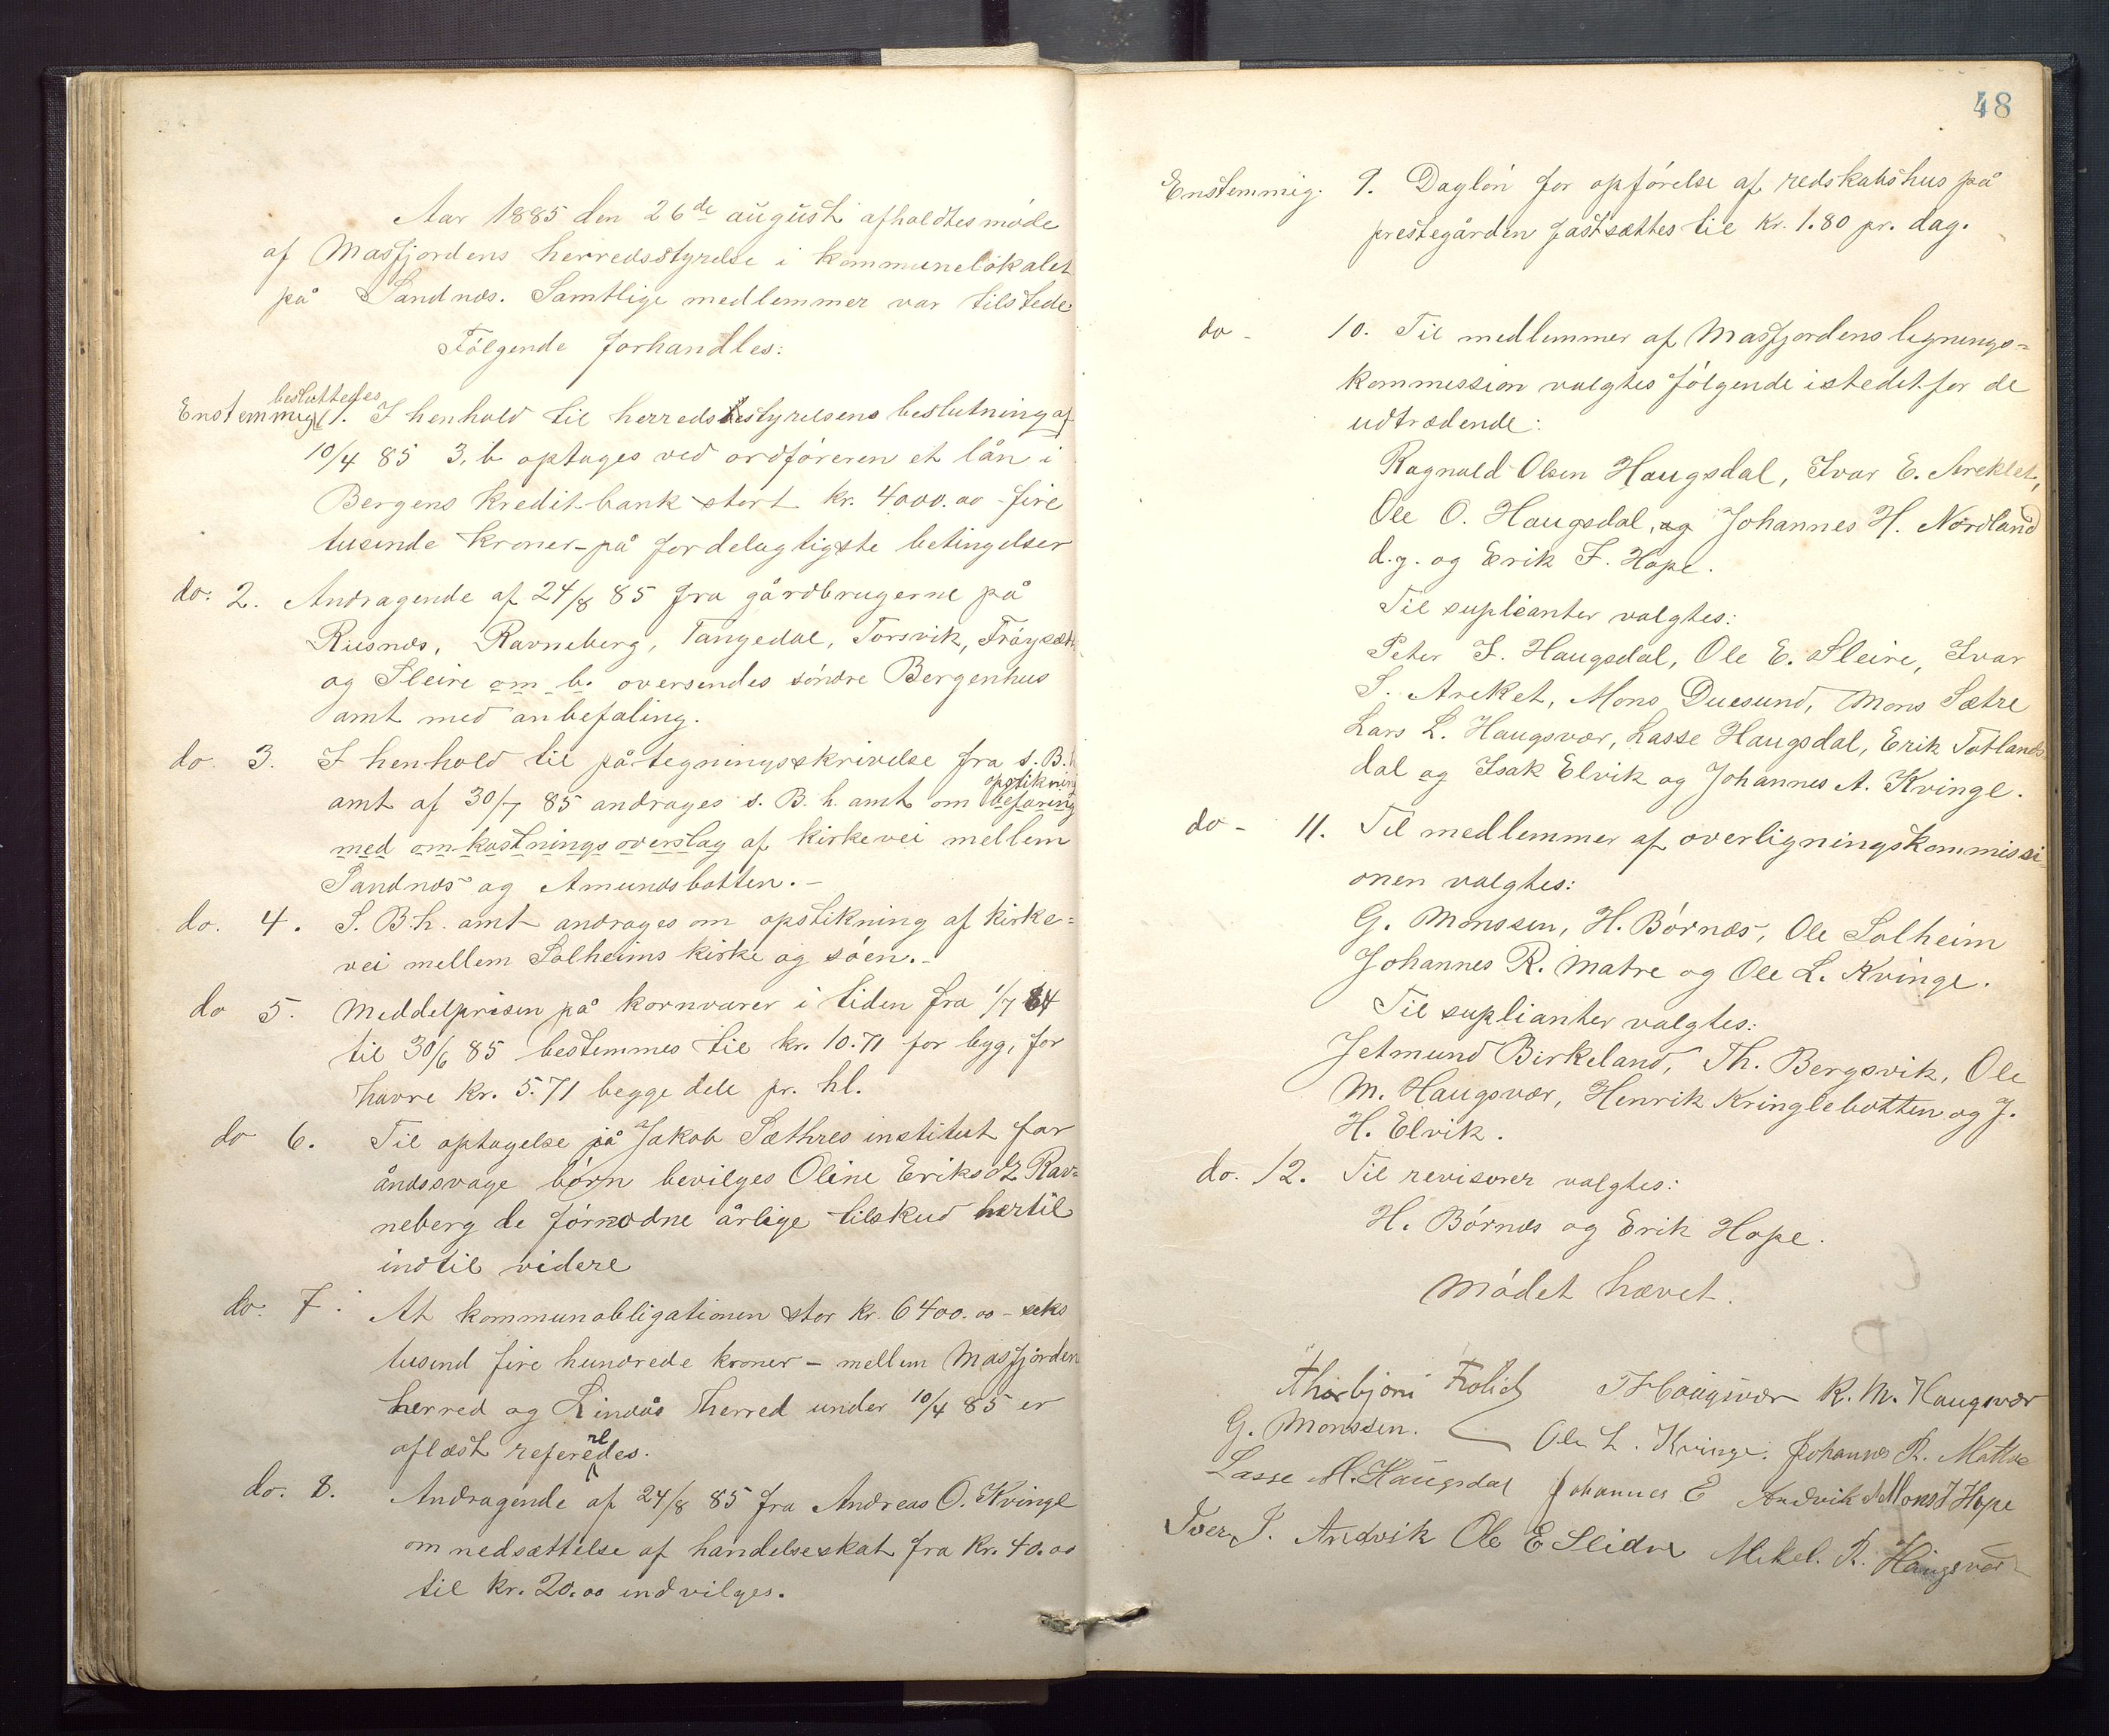 Aar 1885 den 26de august afholdtes møde
af Masfjordens herredsstyrelse i kommunelokalet
på Sandnæs. Samtlige medlemmer var tilstede
Følgende forhandles:
besluttedes
Enstemmig 1. I henhold til herredsbestyrelsens beslutning af
10/4 85 3, b optages ved ordføreren et lån i
Bergens Kredit-bank stort kr. 4000.00 - fire
tusinde kroner - på fordelagtigste betingelser
do. 2. Andragende af 24/8 85 fra gårdbrugerne på
Risnæs, Ravneberg, Tangedal, Torsvik, Frøysæt
og Sleire om b. oversendes søndre Bergenhus
amt med anbefaling.
do. 3. I henhold til påtegningsskrivelse fra s. B. h
amt af 30/7 85 andrages s. B. h. amt om befaring
opstikning
med omkostningsoverslag af kirkevei mellem
Sandnæs og Amundsbotten. -
do. 4. S. B. h. amt andrages om opstikning af kirke=
vei mellem Solheims kirke og søen. -
do 5. Meddelprisen på kornvarer i tiden fra 1/7 84
til 30/6 85 bestemmes til kr. 10.71 for byg, for
havre kr. 5.71 begge dele pr. hl.
do 6. Til optagelse på Jakob Sæthres institut for
åndssvage børn bevilges Oline Eriksdt Rav=
neberg de fórnødne årlige tilskud hertil
indtil videre
do. 7. At kommunobligationen stor kr. 6400.00 - seks
tusind fire hundrede kroner - mellem Masfjorden
herred og Lindås herred under 10/4 85 er
oplæst refereredes.
do. 8. Andragende af 24/8 85 fra Andreas O. Kvinge
om nedsættelse af handelsskat fra kr. 40.00
til kr. 20.00 indvilges.
48
Enstemmig. 9. Dagløn for opførelse af redskabshus på
prestegården fastsættes til kr. 1.80 pr. dag.
do - 10. Til medlemmer af Masfjordens legnings=
kommission valgtes følgende istedetfor de
udtrædende:
Ragnald Olsen Haugsdal, Ivar E. Areklet,
Ole O. Haugsdal, og Johannes H. Nordland
d.y. og Erik F. Hope.
Til suplianter valgtes:
Peter I. Haugsdal, Ole E. Sleire, Ivar
S. Areket, Mons Duesund, Mons Sætre
Lars L. Haugsvær, Lasse Haugsdal, Erik Totlands
dal og Isak Elvik og Johannes A. Kvinge.
do - 11. Til medlemmer af overligningskommissi
onen valgtes:
G. Monssen, H. Børnæs, Ole Solheim
Johannes R. Matre og Ole L. Kvinge.
Til suplianter valgtes:
Jetmund Birkeland, Th. Bergsvik, Ole
M. Haugsvær, Henrik Kringlebotten og J.
H. Elvik.
do. 12. Til revisorer valgtes:
H. Børnæs og Erik Hope.
Mødet hævet.
Thorbjørn Frølich Haugsvær R. M. Haugsvær
G. Monssen. Ole L. Kvinge. Johannes R. Mattre
Lasse M. Haugsdal Johannes E Andvik Mons I Hope
Iver I. Andvik Ole E Sleidre Mikel. R. Haugsvær